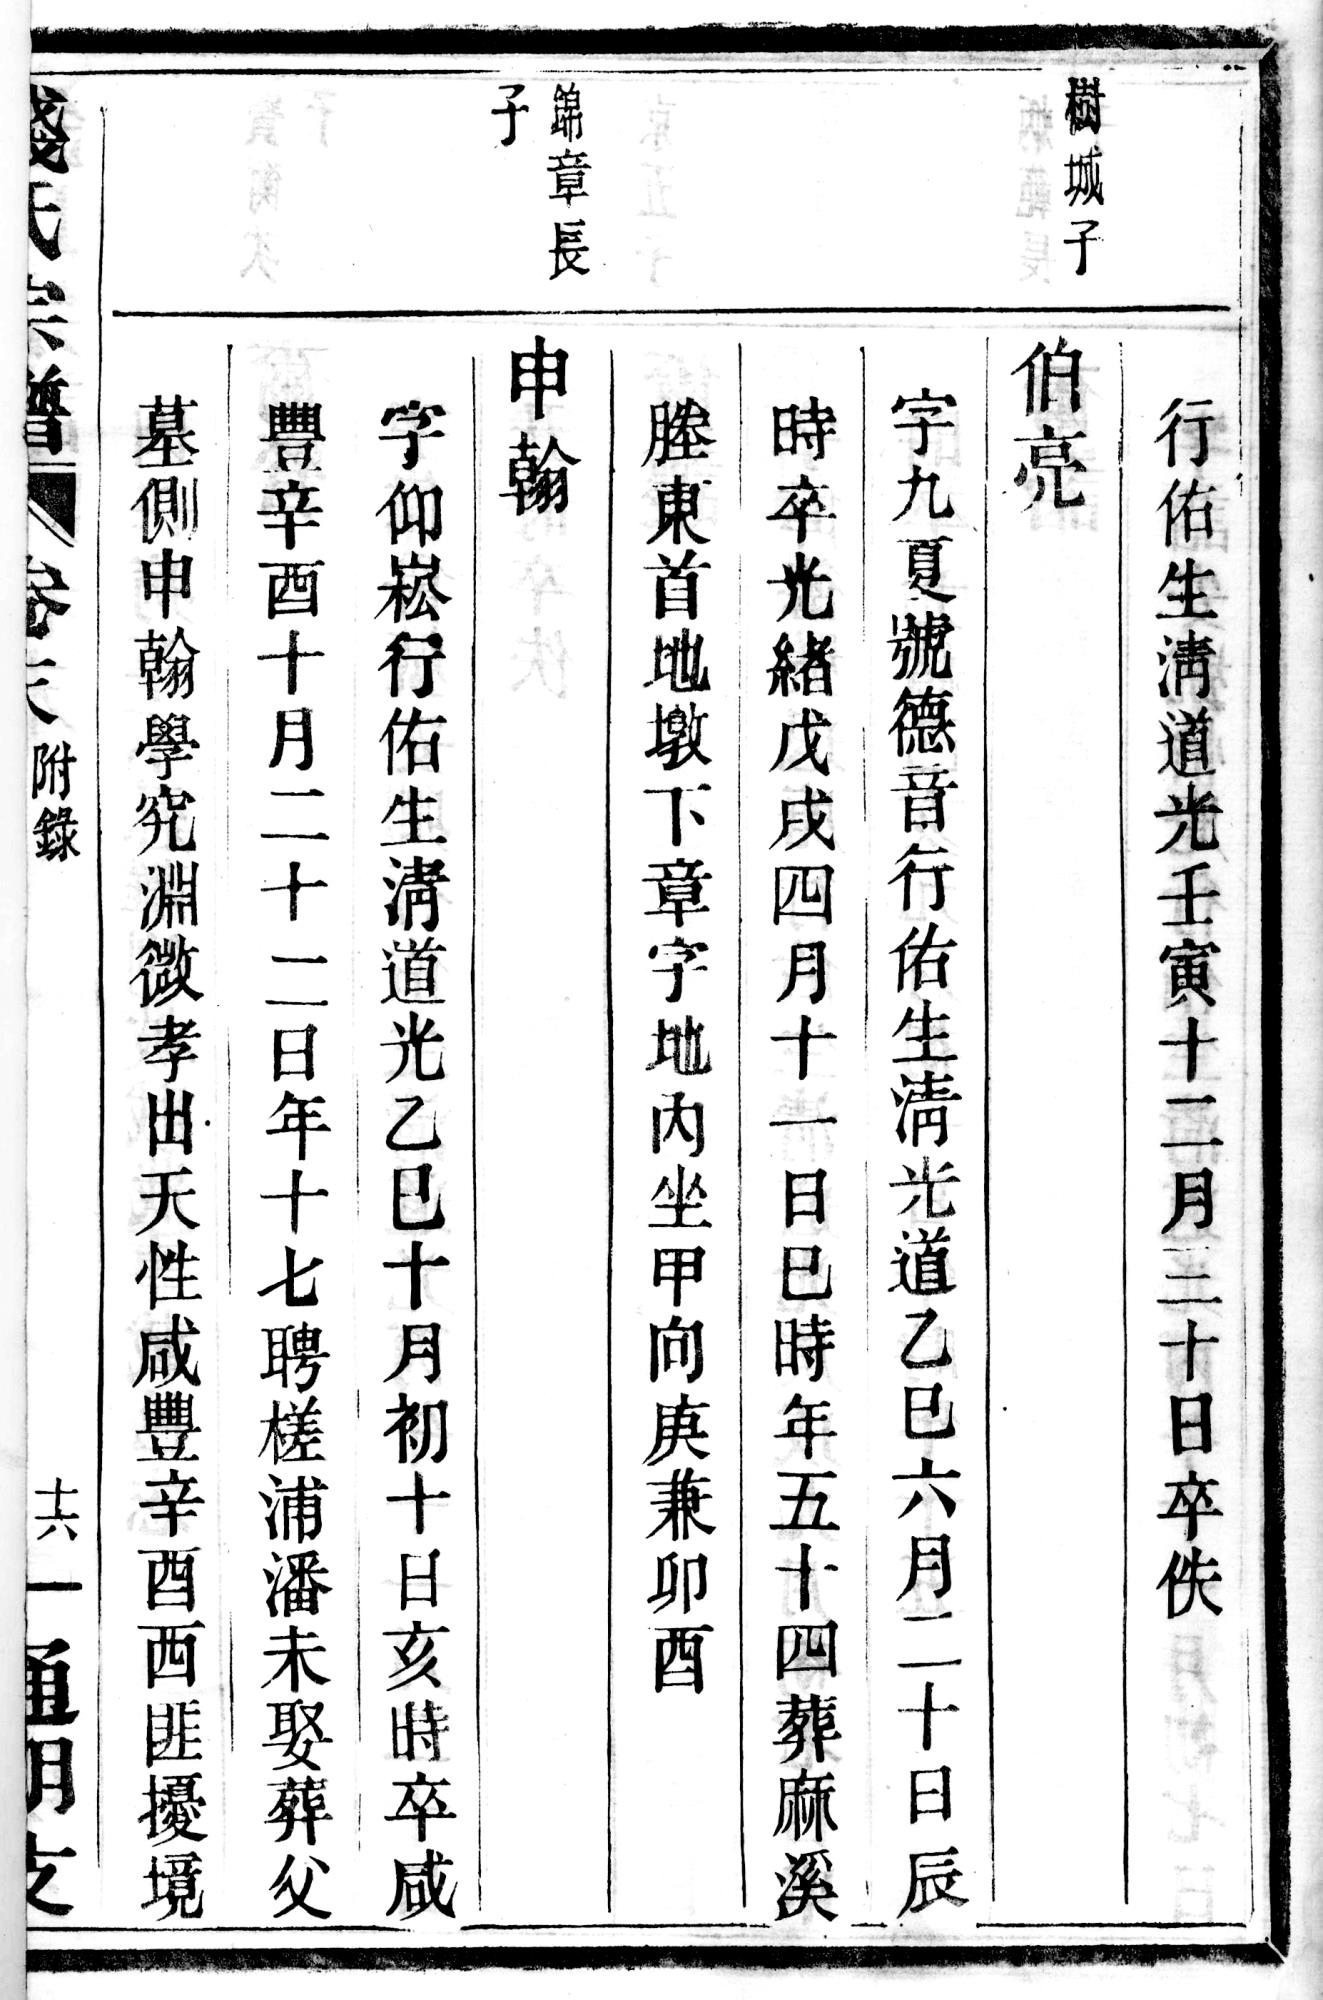 行佑生淸道光壬寅十二月三十日卒佚
樹城子
伯亮
字九夏號德音行佑生淸光道乙巳六月二十日辰
時卒光緖戊戌四月十一日巳時年五十四葬麻溪
塍東首地墩下章字地內坐甲向庚兼卯酉
錦章長
子
申翰
字仰崧行佑生淸道光乙巳十月初十日亥時卒咸
豐辛酉十月二十二日年十七聘槎浦潘未娶葬父
墓側申翰學究淵微孝出天性咸豐辛酉西匪擾境
錢氏宗譜 卷六 附錄 十六 通明支